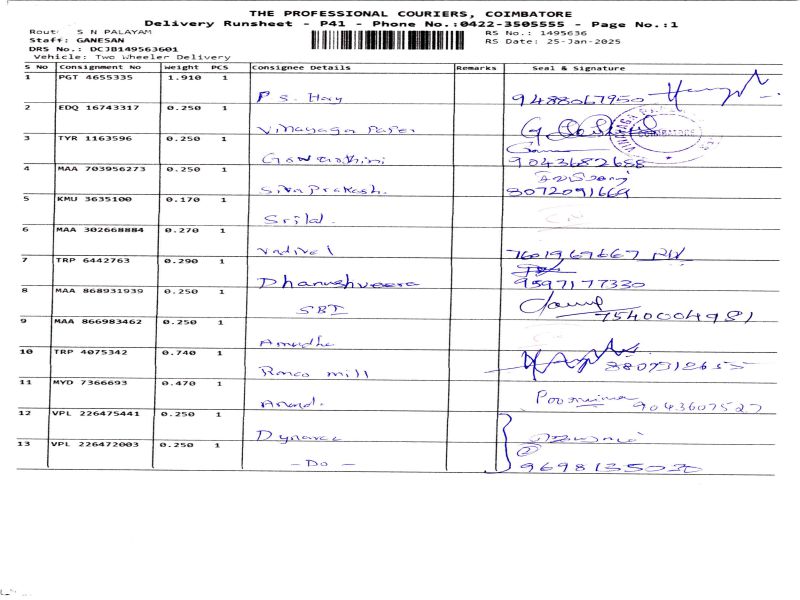 THE PROFESSIONAL COURIERS, COIMBATORE
Delivery Runsheet - P41 - Phone No.:0422-3505555 - Page No.:1
Rout: S N PALAYAM
RS No.: 1495636
Staff: GANESAN
RS Date: 25-Jan-2025
DRS No.: DCJB149563601
Vehicle: Two Wheeler Delivery
S No Consignment No Weight PCS Consignee Details Remarks Seal & Signature
1 PGT 4655335 1.910 1
P S. Hary 9488067950
2 EDQ 16743317 0.250 1
Vinayaga Paper
3 TYR 1163596 0.250 1
Gowthami 9043682688
4 MAA 703956273 0.250 1
Siva Prakash. 8072091664
5 KMU 3635100 0.170 1
6 MAA 302668884 0.270 1
Vadivel
7 TRP 6442763 0.290 1
Dhanushveera 9597177330
8 MAA 868931939 0.250 1
SBI 7540004981
9 MAA 866983462 0.250 1
Amudha
10 TRP 4075342 0.740 1
mill
11 MYD 7366693 0.470 1
Anand. 9043607527
12 VPL 226475441 0.250 1
13 VPL 226472003 0.250 1
- Do - 9698135030